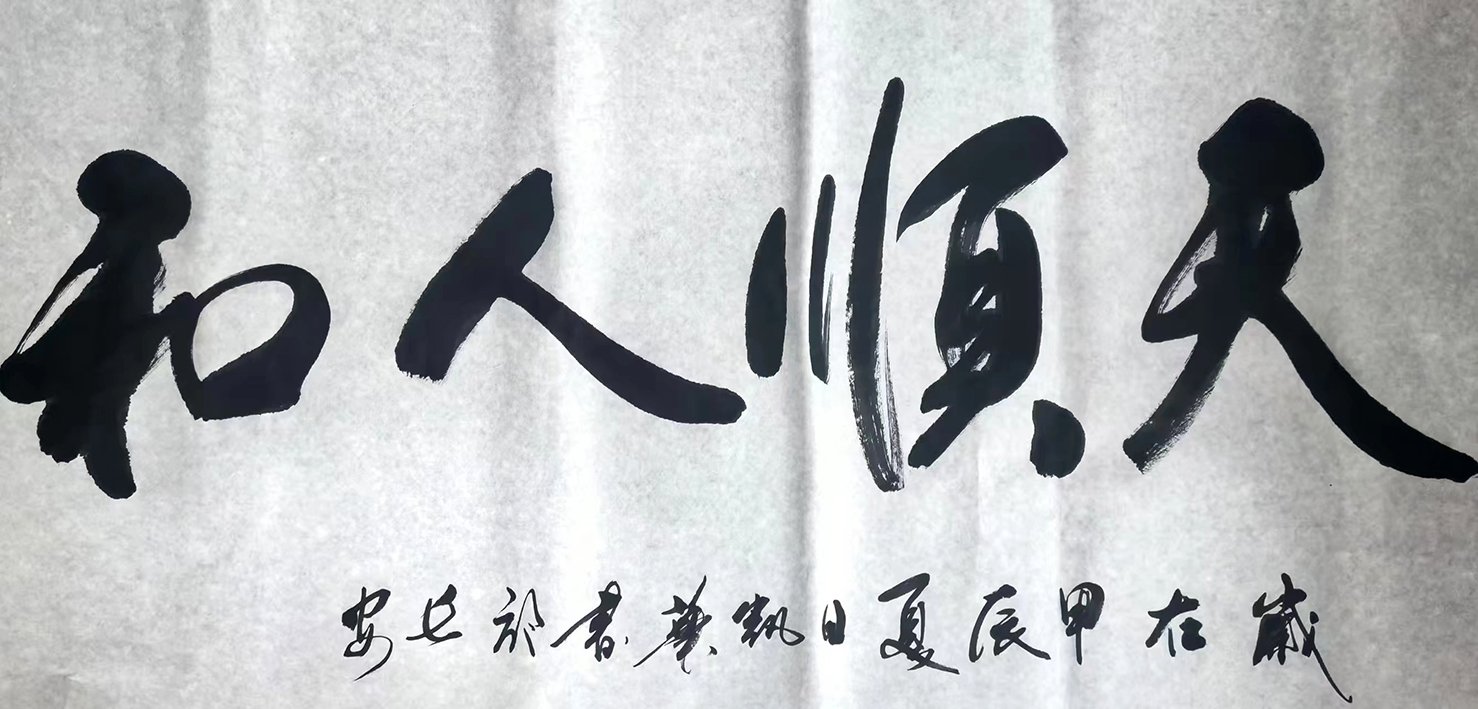 天順人和
歲在甲辰夏日凱華書於安丘